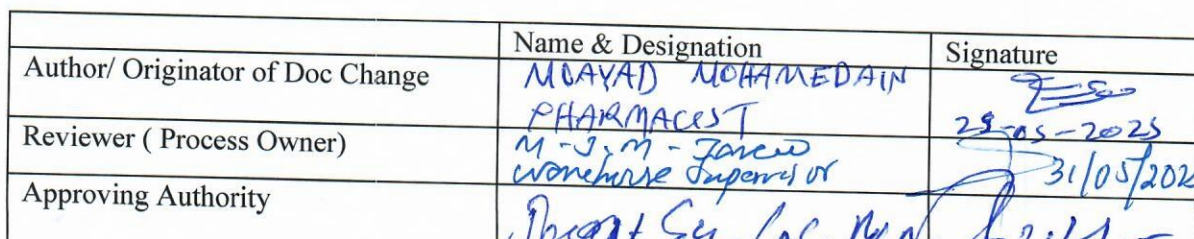 Name & Designation Signature
Author/ Originator of Doc Change MOAYAD MOHAMEDAIN
PHARMACIST 29-05-2025
Reviewer ( Process Owner) M-J.M-
Warehouse Supervisor 31/05/202
Approving Authority